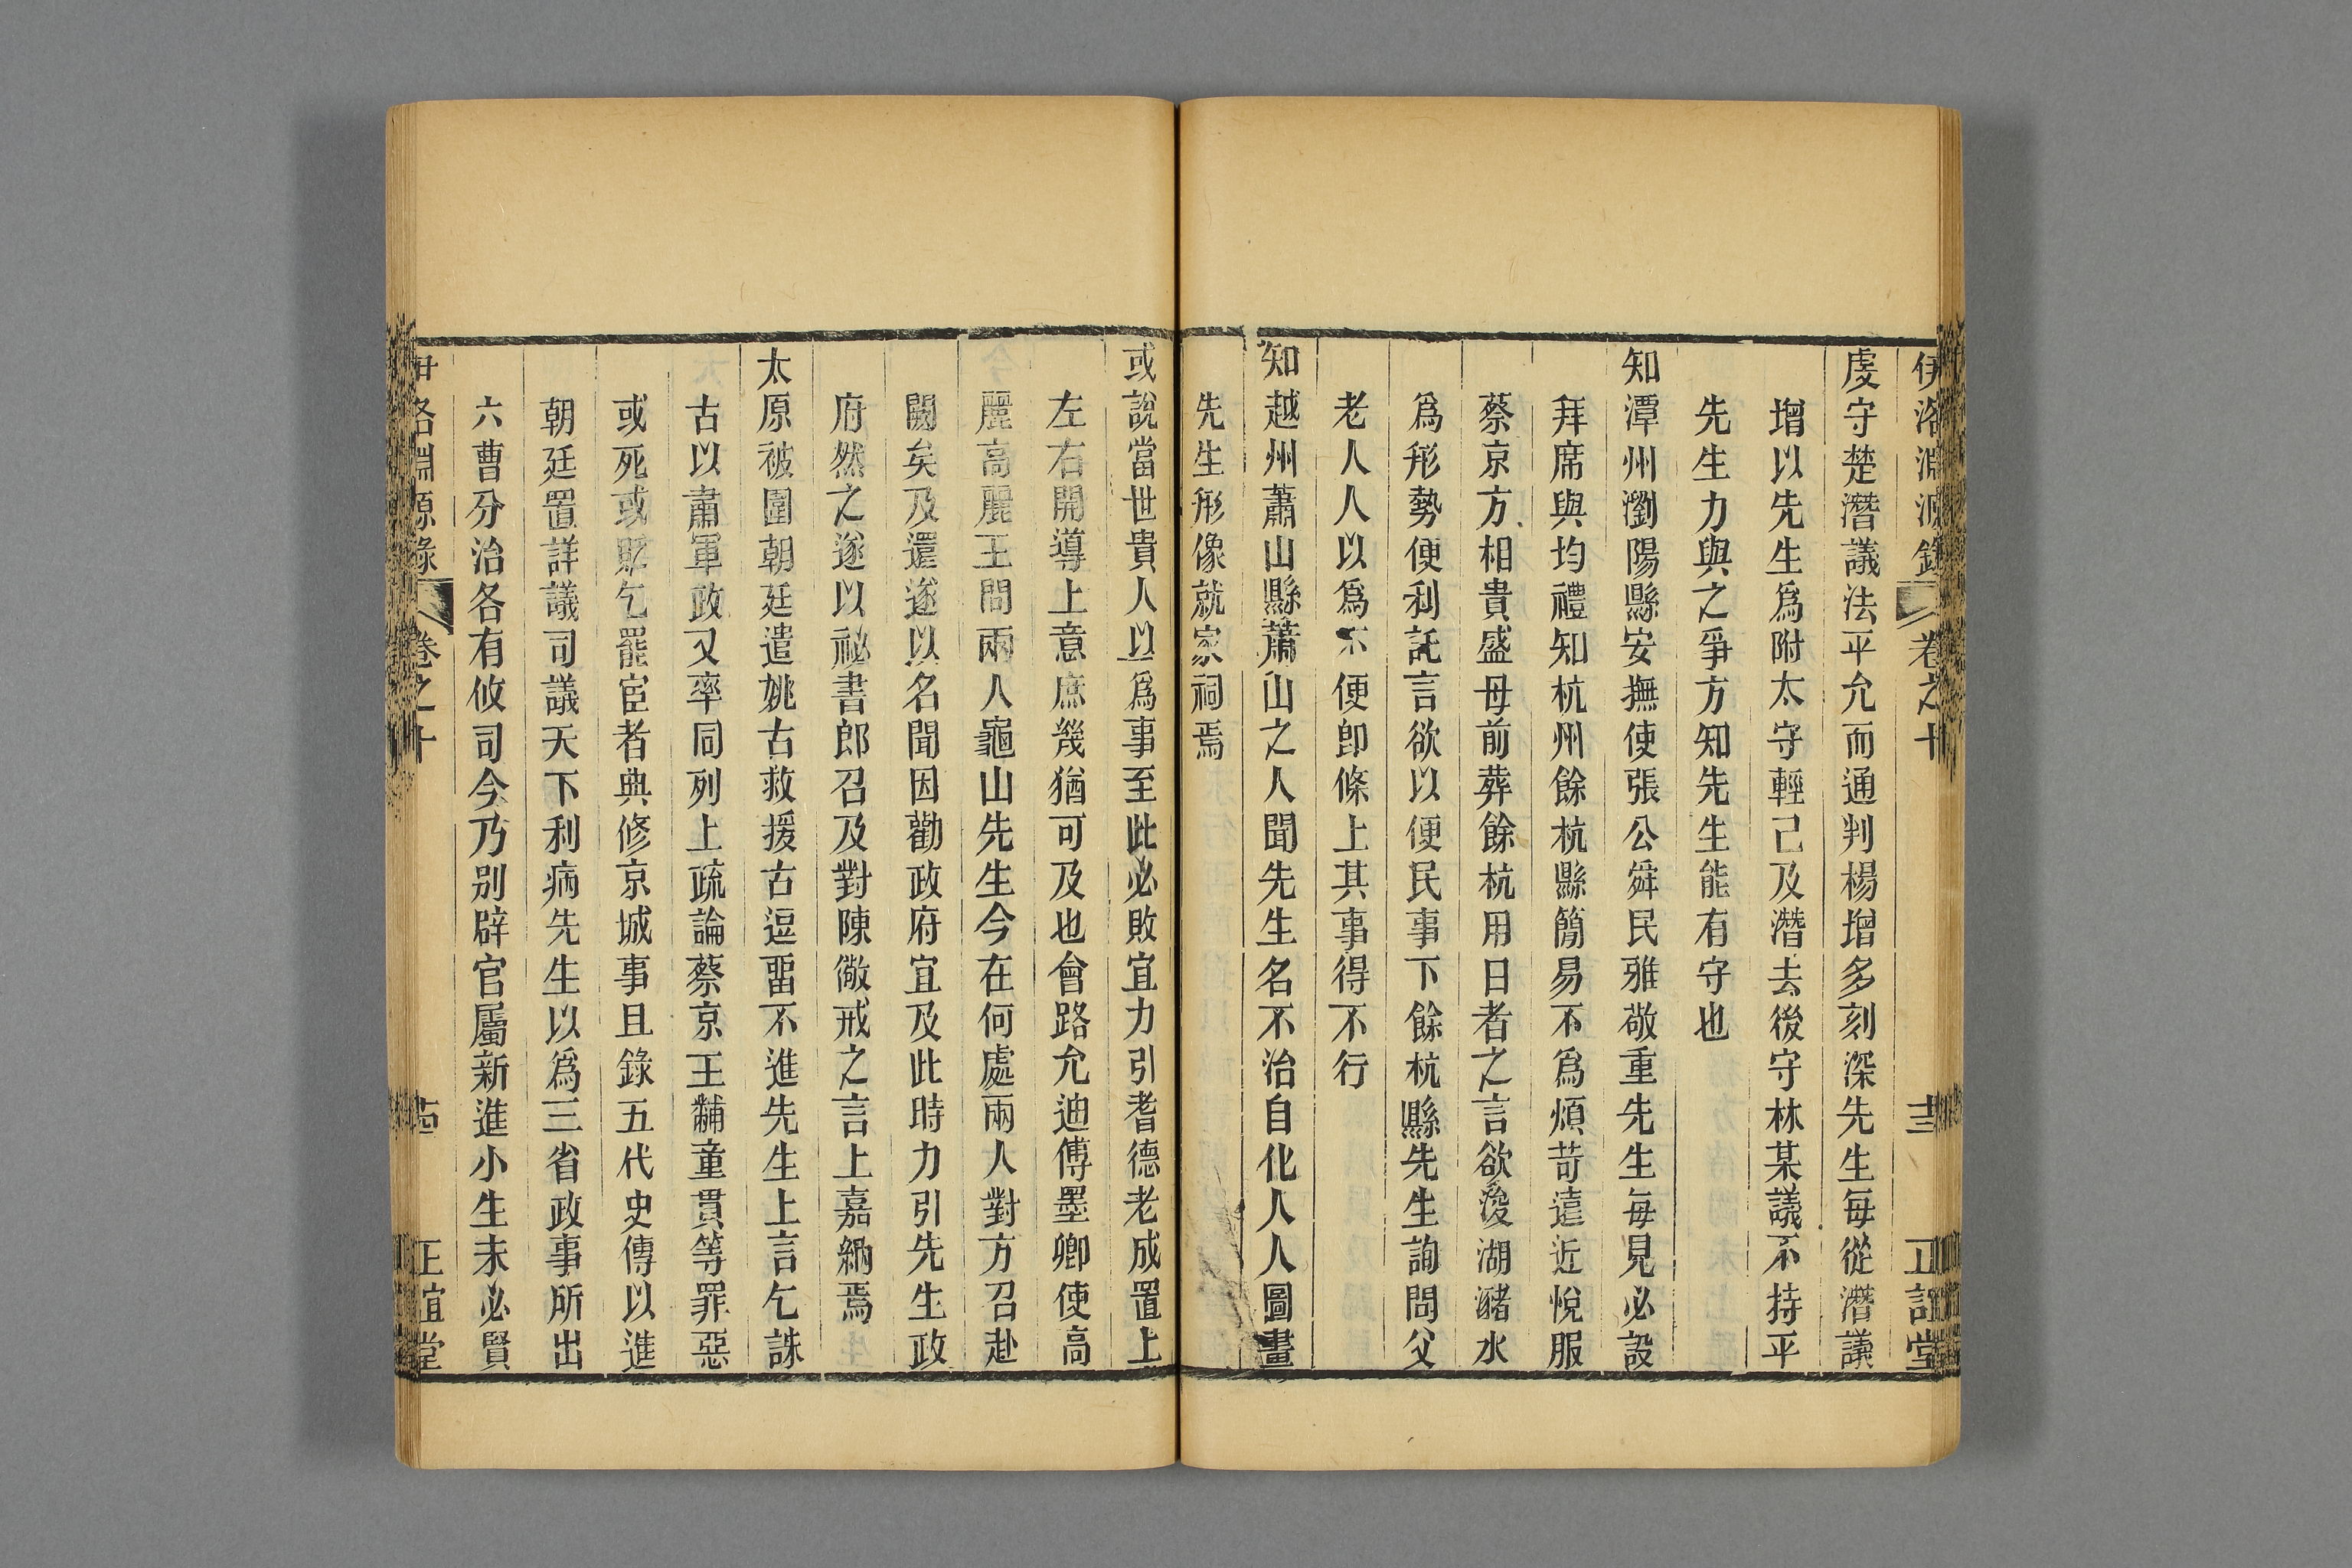 伊洛淵源錄 卷之十 十三 正誼堂
虔守楚潛議法平允而通判楊增多刻深先生每從潛議
增以先生爲附太守輕己及潛去後守林某議不持平
先生力與之爭方知先生能有守也
知潭州瀏陽縣安撫使張公舜民雅敬重先生每見必設
拜席與均禮知杭州餘杭縣簡易不爲煩苛遠近悅服
蔡京方相貴盛母前葬餘杭用日者之言欲浚湖瀦水
爲形勢便利託言欲以便民事下餘杭縣先生詢問父
老人人以爲不便卽條上其事得不行
知越州蕭山縣蕭山之人聞先生名不治自化人人圖畫
先生形像就家祠焉
或說當世貴人以爲事至此必敗宜力引耆德老成置上
左右開導上意庶幾猶可及也會路允迪傅墨卿使高
麗高麗王問兩人龜山先生今在何處兩人對方召赴
闕矣及還遂以名聞因勸政府宜及此時力引先生政
府然之遂以祕書郎召及對陳儆戒之言上嘉納焉
太原被圍朝廷遣姚古救援古逗畱不進先生上言乞誅
古以肅軍政又率同列上疏論蔡京王黼童貫等罪惡
或死或貶乞罷宦者典修京城事且錄五代史傳以進
朝廷置詳議司議天下利病先生以爲三省政事所出
六曹分治各有攸司今乃別辟官屬新進小生未必賢
伊洛淵源錄 卷之十 十四 正誼堂